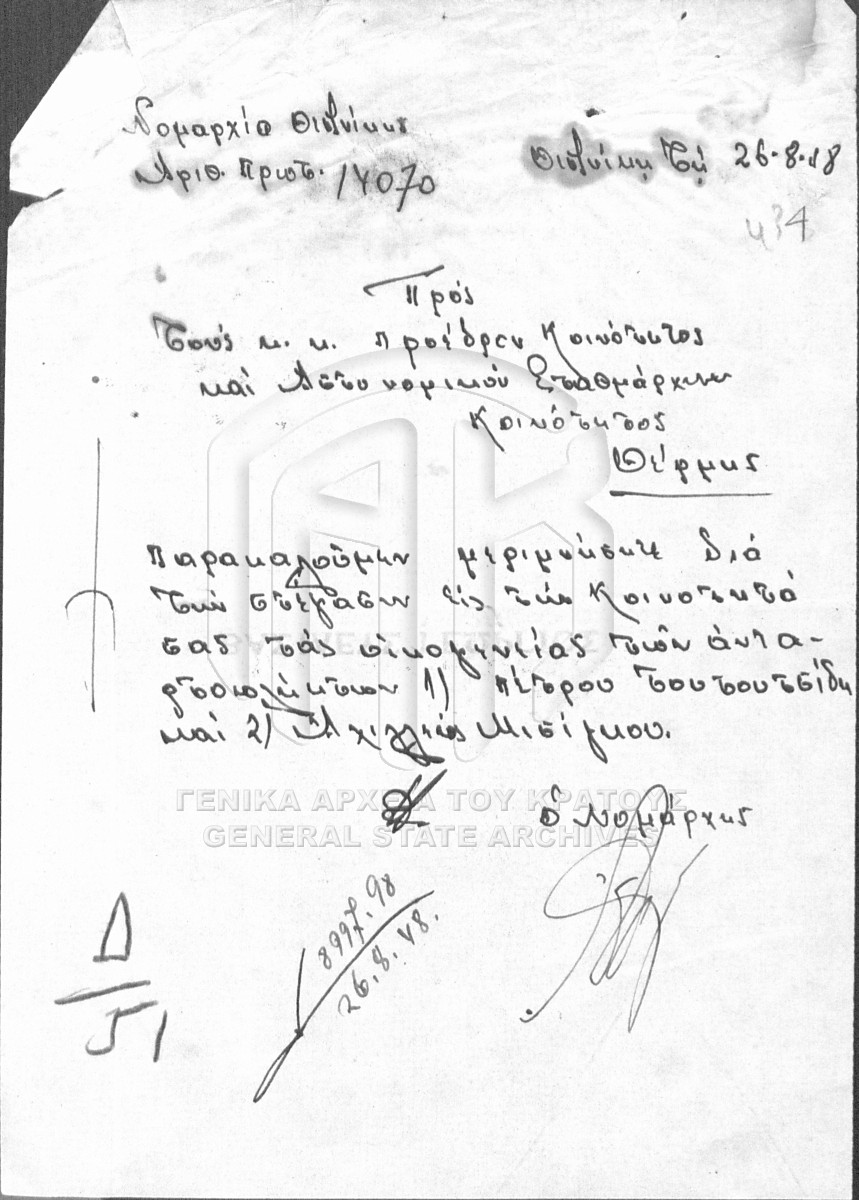 Νομαρχία Θεσ/νίκης
Αριθ. Πρωτ. 14070
Θεσ/νίκη τῇ 26-8-48
434
Πρός
Τούς κ. κ. Πρόεδρον Κοινότητος
καί Αστυνομικόν Σταθμάρχην
Κοινότητος
Θέρμης
Παρακαλοῦμεν μεριμνήσητε διά
τήν στέγασιν εἰς τήν Κοινότητά
σας τάς οἰκογενείας τῶν ἀντα-
ρτοπλήκτων 1) Πέτρου Τουτουτσίδη
καί 2) Ἀχιλλέως Μισίγκου.
Ὁ Νομάρχης
8997.98
26.8.48.
Δ
51
ΓΕΝΙΚΑ ΑΡΧΕΙΑ ΤΟΥ ΚΡΑΤΟΥΣ
GENERAL STATE ARCHIVES